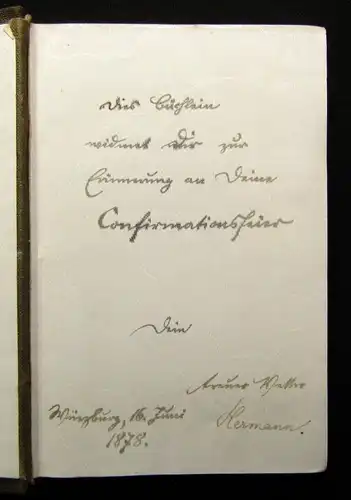 Dies Büchlein
widmet Dir zur
Erinnerung an Deine
Confirmationsfeier
Dein
treuer Vetter
Würzburg, 16. Juni
Hermann.
1878.